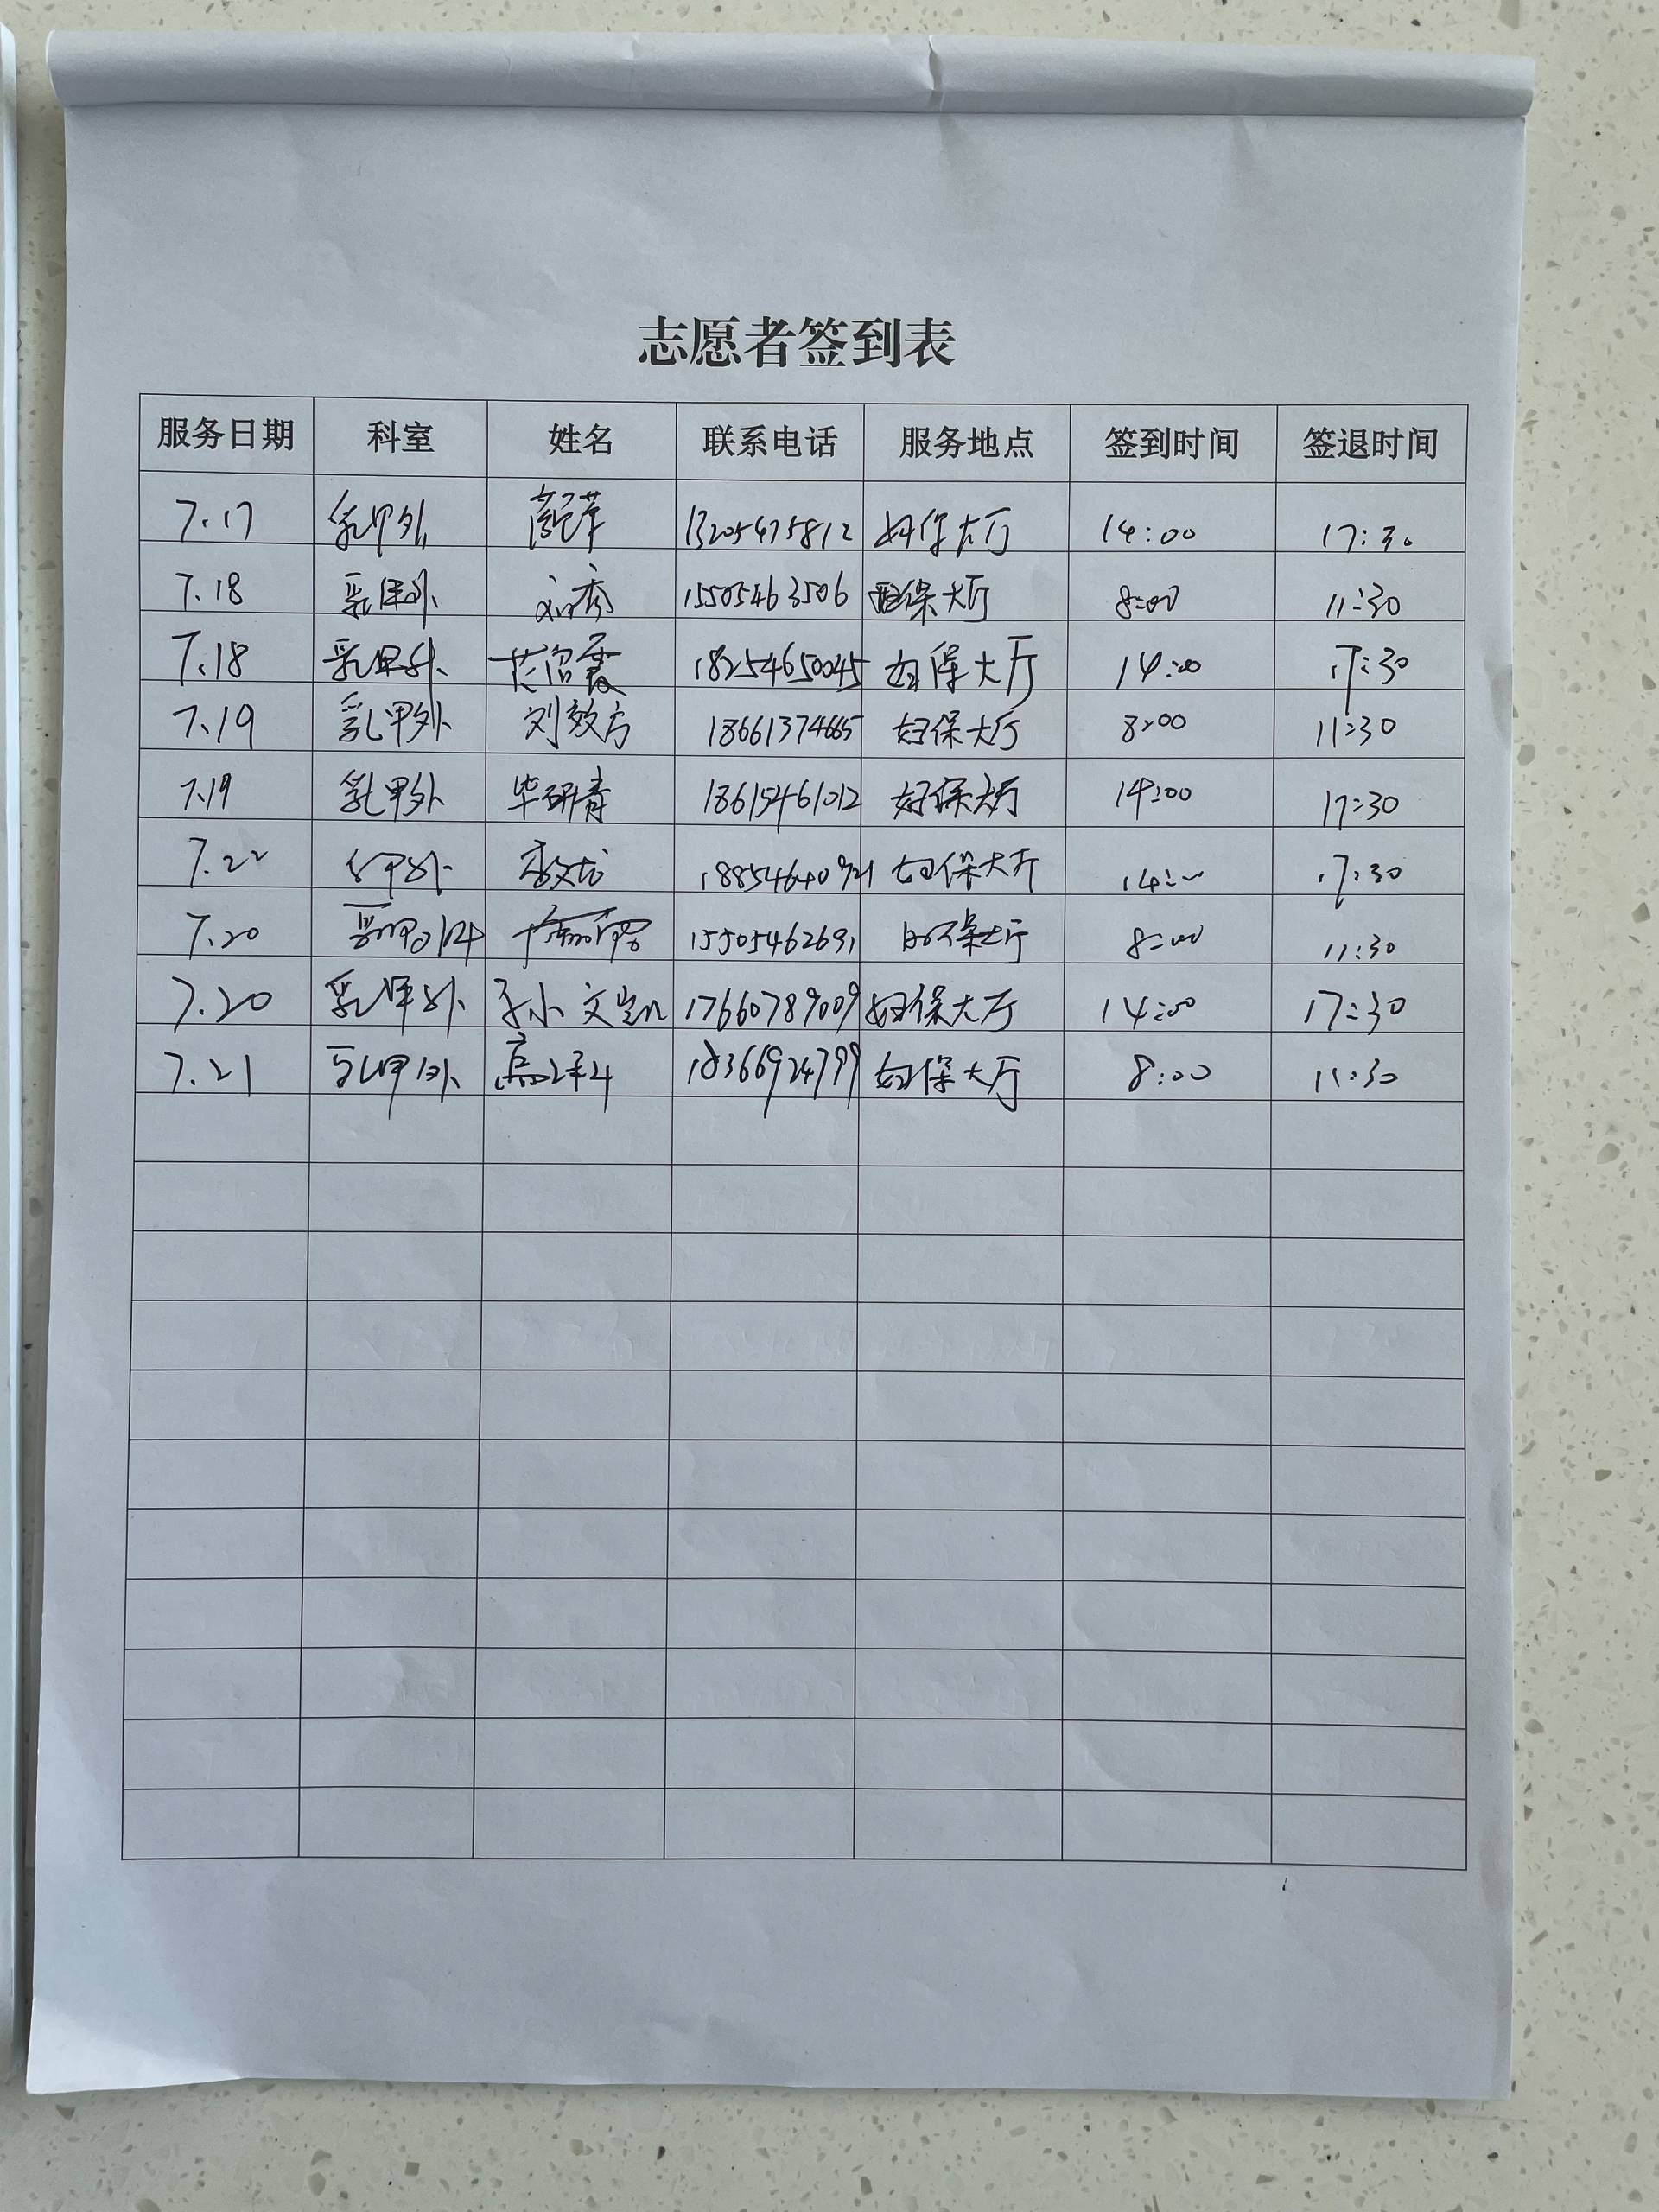 志愿者签到表
服务日期 科室 姓名 联系电话 服务地点 签到时间 签退时间
7.17 乳甲外 13205475812 妇保大厅 14:00 17:30
7.18 乳甲外 15505463506 妇保大厅 8:00 11:30
7.18 乳甲外 18254650045 妇保大厅 14:00 17:30
7.19 乳甲外 刘效方 18661374665 妇保大厅 8:00 11:30
7.19 乳甲外 毕研青 18615461012 妇保大厅 14:00 17:30
7.22 乳甲外 妇保大厅 14:00 17:30
7.20 乳甲外 15505462691 妇保大厅 8:00 11:30
7.20 乳甲外 孙文凯 17660789009 妇保大厅 14:00 17:30
7.21 乳甲外 18366924799 妇保大厅 8:00 11:30